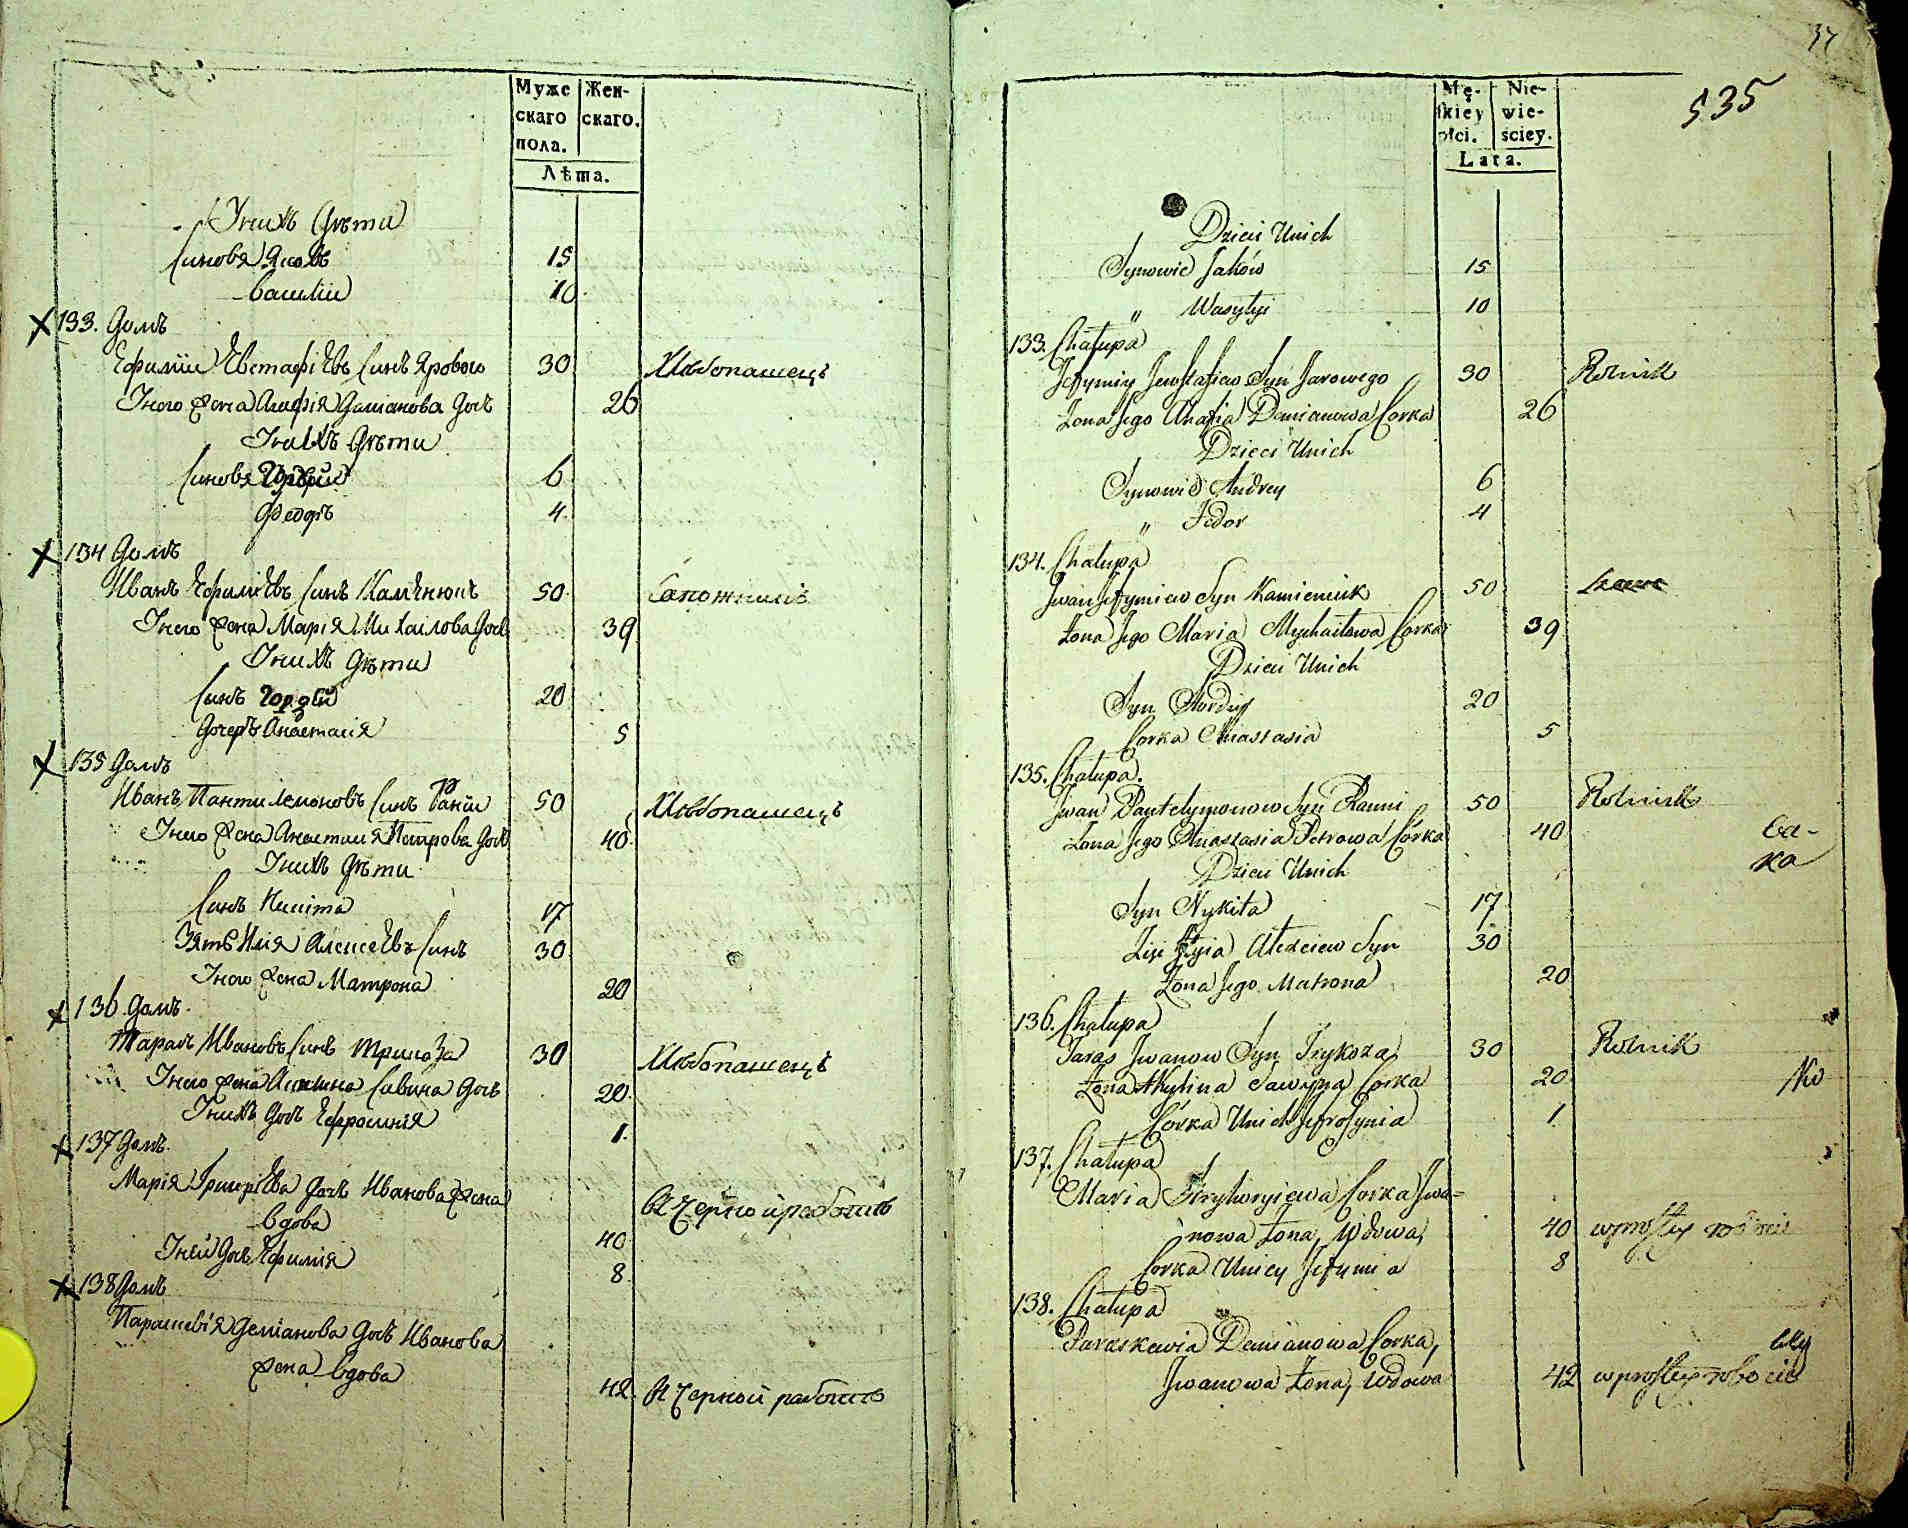 Муже
скаго
пола.
Жен-
скаго.
Лѣта.
Унихъ Дѣти
Синовя Яковъ 15
Василiи 10
133. Домъ
Ефимiи Евстафiевъ Синъ Ярового 30 Хлѣбопашецъ
Унего жена Агафiя Дамiанова Дочь 26
Унихъ Дѣти
Синовя 6
Федоръ 4
134 Домъ
Иванъ Ефимiевъ Синъ Каменюкъ 50 Сапожникъ
Унего жена Марiя Михаилова Дочь 39
Унихъ Дѣти
Синъ Гордѣй 20
Дочеръ Анастасiя 5
135 Домъ
Иванъ Пантилемоновъ Синъ 50 Хлѣбопашецъ
Унего жена Анастасия Петрова Дочь 40
Унихъ Дѣти
Синъ Никита 17
Зять Илiя Алексѣевъ Синъ 30
Унего жена Матрона 20
136 Домъ
Тарасъ Ивановъ Синъ Трикоза 30 Хлѣбопашецъ
Унего жена Акилина Савина Дочь 20
Унихъ Дочь Ефросинiя 1.
137 Домъ
Марiя Григорiева Дочь Иванова жена
вдова 40 Въ Черной работѣ
Уней Дочь Ефимiя 8
138 Домъ
Параскевiя Демiанова Дочь Иванова
жена вдова 42 Въ Черной работѣ
37
535
Mę-
skiey
płci.
Nie-
wie-
sciey.
Lata.
Dzieci Unich
Synowie Jaków 15
" Wasylyi 10
133. Chałupa
Jefymiy Jewstafiew Syn Jarowego 30 Rolnik
Żona Jego Ahafia Demianowa Corka 26
Dzieci Unich
Synowie Andrey 6
" Fedor 4
134. Chałupa
Jwan Jefymiew Syn Kamieniuk 50
Żona Jego Maria Mychaiłowa Corka 39
Dzieci Unich
Syn Hordiy 20
Corka Anastasia 5
135. Chałupa.
Jwan Pantelymonow Syn 50 Rolnik
Żona Jego Anastasia Petrowa Córka 40
Dzieci Unich
Syn Nykita 17
Jlia Alexiew Syn 30
Żona Jego Matrona 20
136. Chałupa
Taras Jwanow Syn Trykoza 30 Rolnik
Żona Akylina Sawyna Corka 20
Córka Unich Jefrosynia 1
137. Chałupa
Maria Hryhoryiewa Corka Jwa=
nowa Żona, Wdowa, 40 wprostey robocie
Corka Uniey Jefymia 8
138. Chałupa
Paraskewia Demianowa Corka,
Jwanowa Żona, Wdowa 42 wprostey robocie